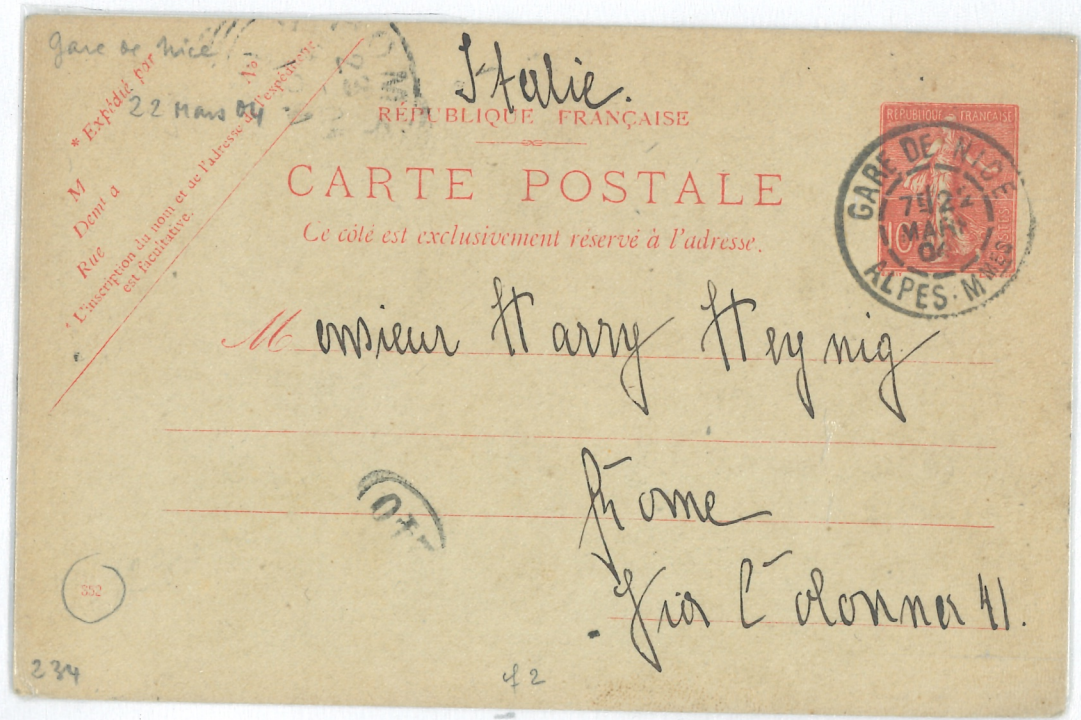 Gare de Nice
22 Mars 04
* Expédié par
M
Demt a
Rue
* L'inscription du nom et de l'adresse de l'expéditeur
est facultative.
Italie.
RÉPUBLIQUE FRANÇAISE
CARTE POSTALE
Ce côté est exclusivement réservé à l'adresse.
RÉPUBLIQUE FRANÇAISE
10
POSTES
GARE DE NICE
22
MARS
04
ALPES-Mmes
Monsieur Harry Heynig
Rome
Via Colonna 41.
352
234
f2